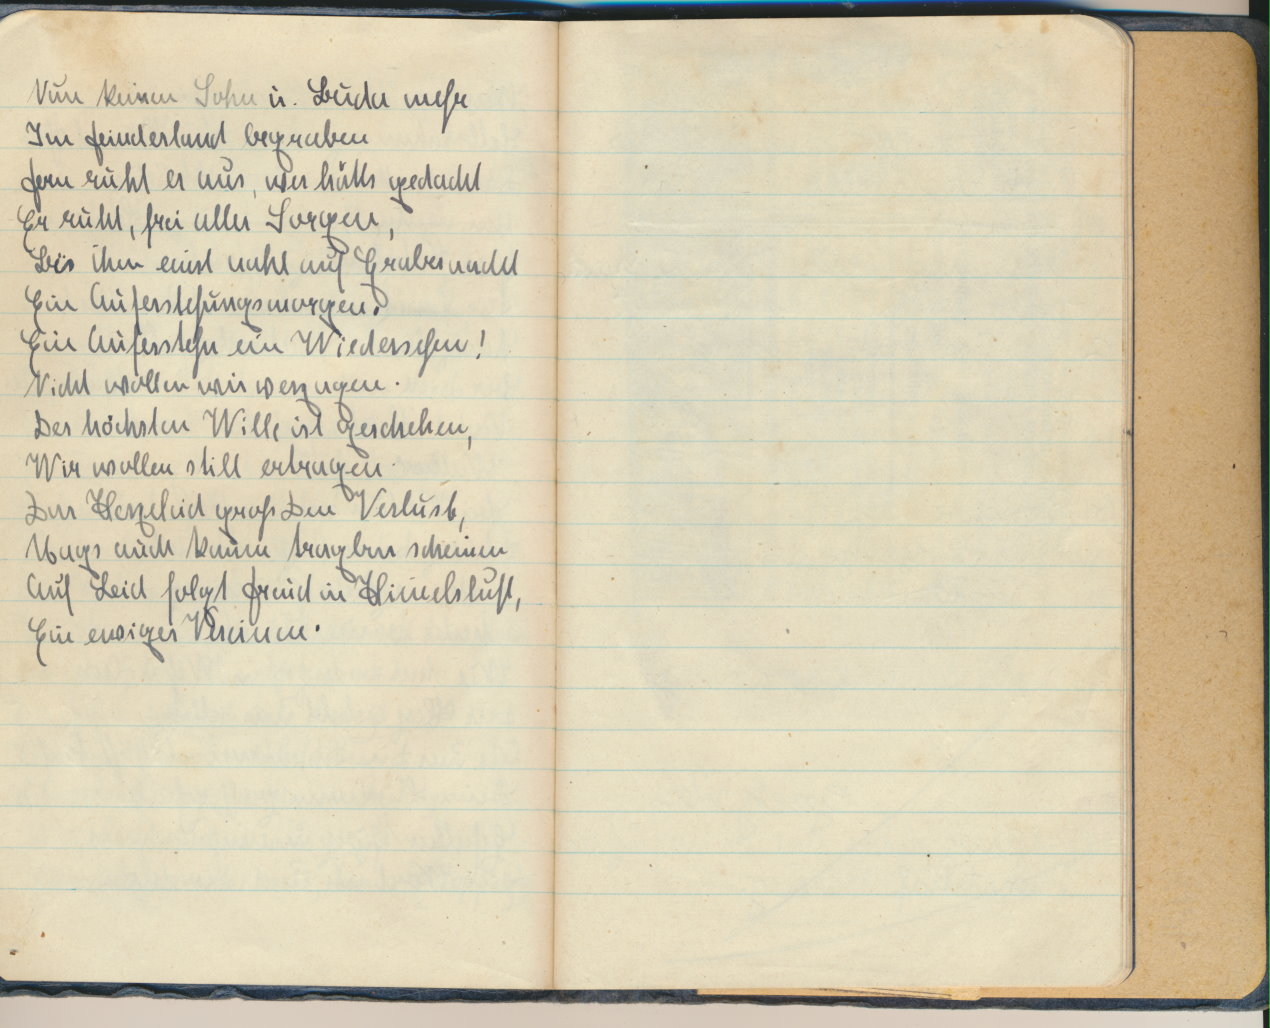 Nun keinen Sohn u. Bruder mehr
Im Feindesland begraben
fern ruht er aus, wer hätts gedacht
Er ruht, frei aller Sorgen,
Bis ihm einst naht auf Grabesnacht
Ein Auferstehungsmorgen.
Ein Auferstehn ein Wiedersehen!
Nicht wollen wir verzagen.
Des höchsten Wille ist geschehen,
Wir wollen still ertragen.
Das Herzeleid groß Den Verlust,
Mags auch kaum tragbar scheinen
Auf Leid folgt Freud in Himmelsluft,
Ein ewiges Vereinen.